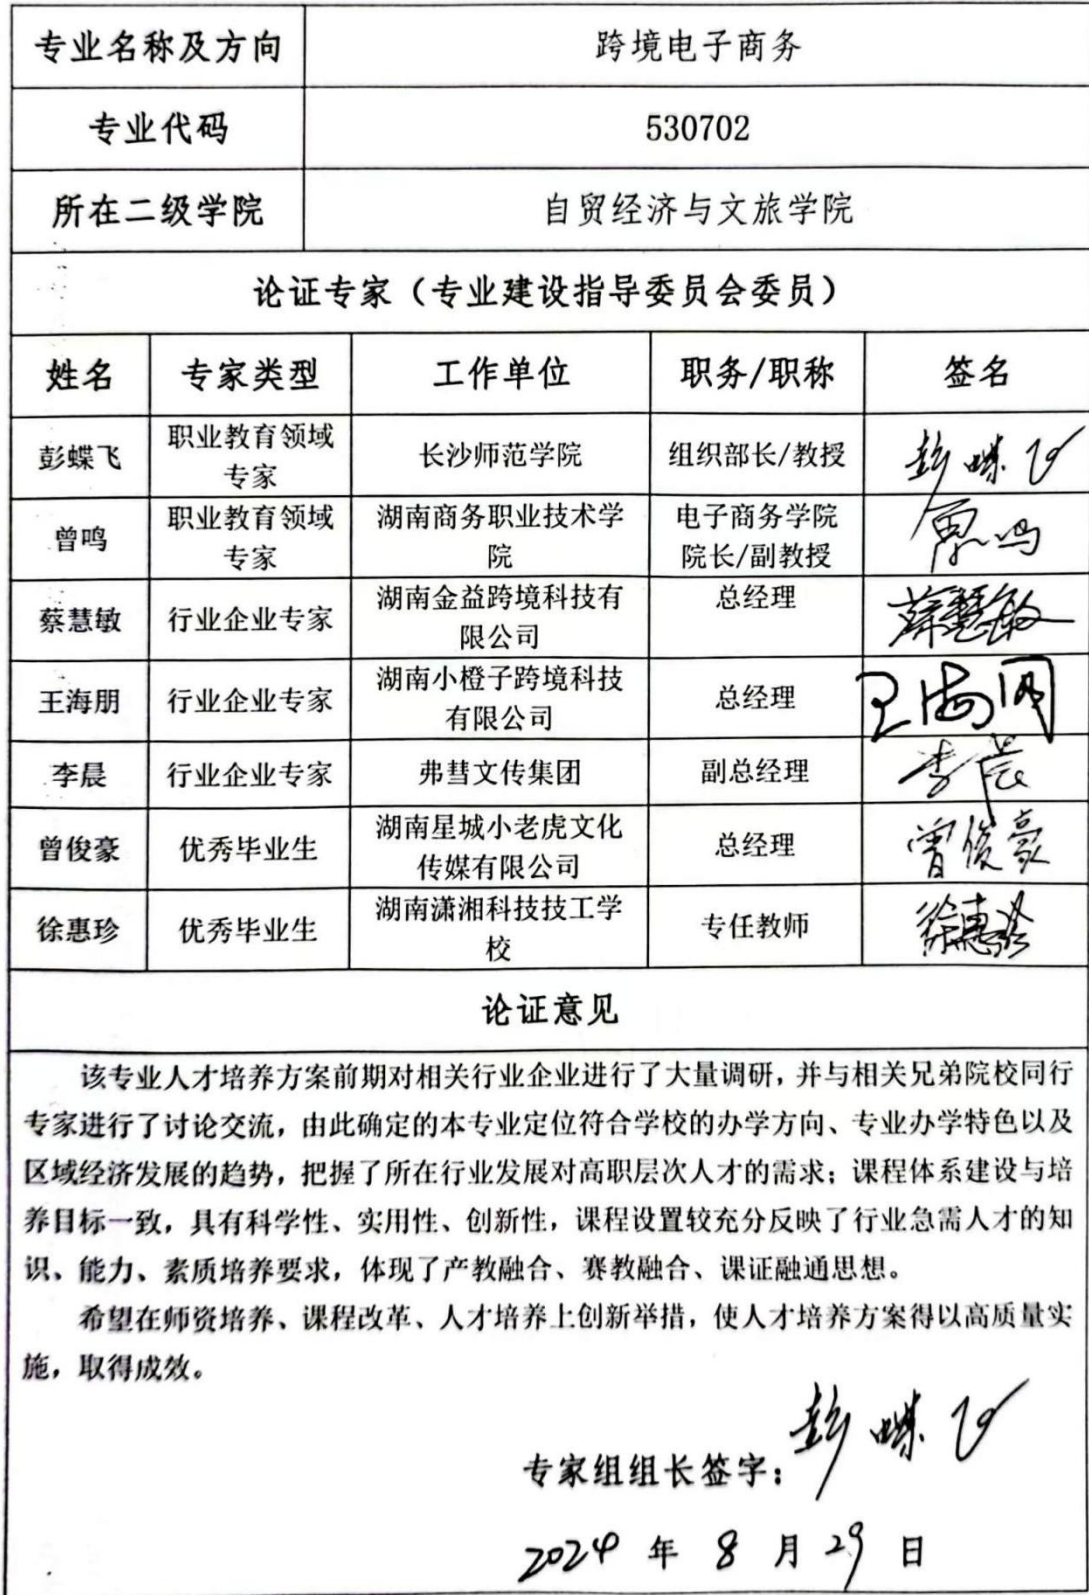 专业名称及方向 跨境电子商务
专业代码 530702
所在二级学院 自贸经济与文旅学院
论证专家（专业建设指导委员会委员）
姓名 专家类型 工作单位 职务/职称 签名
彭蝶飞 职业教育领域专家 长沙师范学院 组织部长/教授 彭蝶飞
曾鸣 职业教育领域专家 湖南商务职业技术学院 电子商务学院院长/副教授 曾鸣
蔡慧敏 行业企业专家 湖南金益跨境科技有限公司 总经理 蔡慧敏
王海朋 行业企业专家 湖南小橙子跨境科技有限公司 总经理 王海朋
李晨 行业企业专家 弗彗文传集团 副总经理 李晨
曾俊豪 优秀毕业生 湖南星城小老虎文化传媒有限公司 总经理 曾俊豪
徐惠珍 优秀毕业生 湖南潇湘科技技工学校 专任教师 徐惠珍
论证意见
该专业人才培养方案前期对相关行业企业进行了大量调研，并与相关兄弟院校同行
专家进行了讨论交流，由此确定的本专业定位符合学校的办学方向、专业办学特色以及
区域经济发展的趋势，把握了所在行业发展对高职层次人才的需求；课程体系建设与培
养目标一致，具有科学性、实用性、创新性，课程设置较充分反映了行业急需人才的知
识、能力、素质培养要求，体现了产教融合、赛教融合、课证融通思想。
希望在师资培养、课程改革、人才培养上创新举措，使人才培养方案得以高质量实
施，取得成效。
专家组组长签字：彭蝶飞
2024 年 8 月 29 日